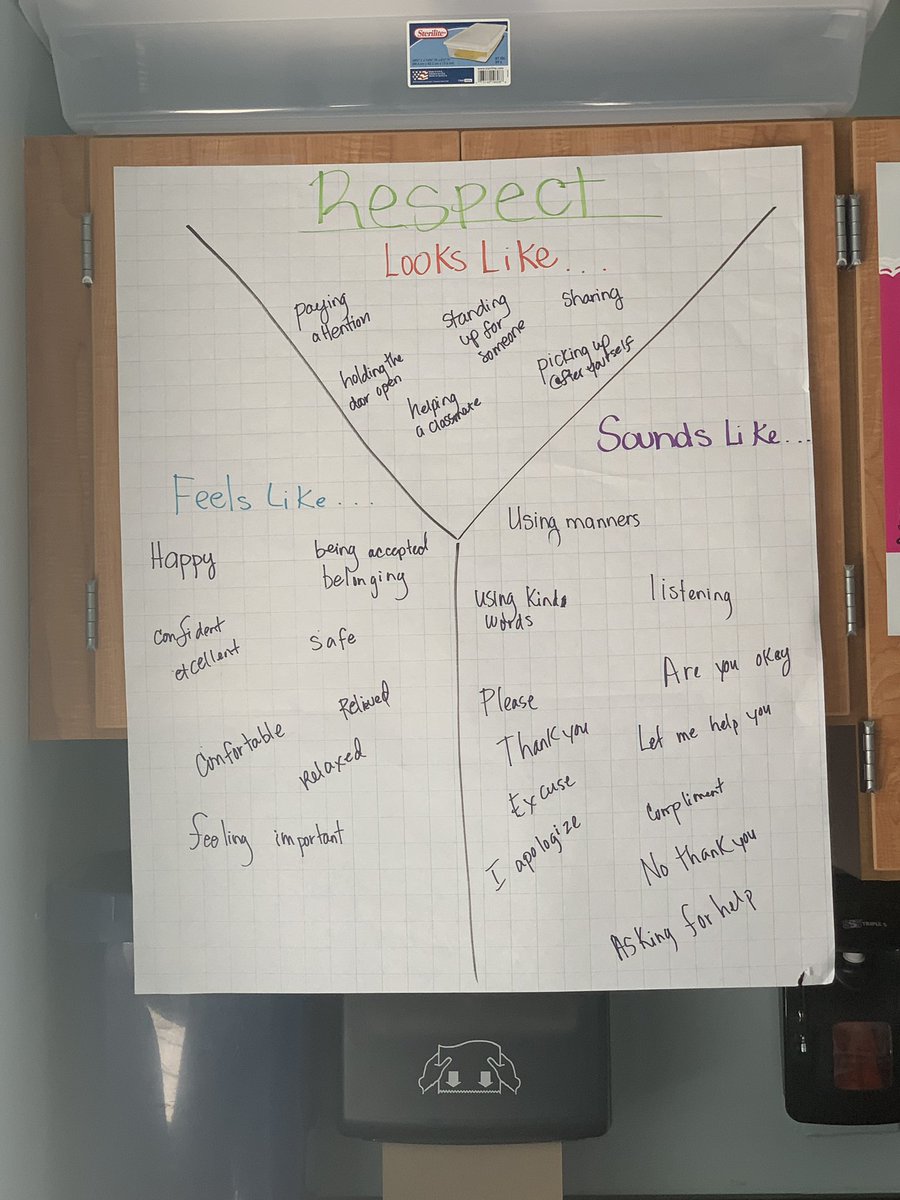 Sterilite
Respect
Looks Like...
paying
attention
standing
up for
someone
sharing
holding the
door open
helping
a classmate
picking up
after yourself
Feels Like...
Happy
being accepted
belonging
confident
excellent
safe
Relieved
Comfortable
Relaxed
feeling important
Sounds Like...
Using manners
using kind
words
listening
Please
Are you okay
Thank you
Let me help you
Excuse
Compliment
I apologize
No thank you
Asking for help
TRIPLE S